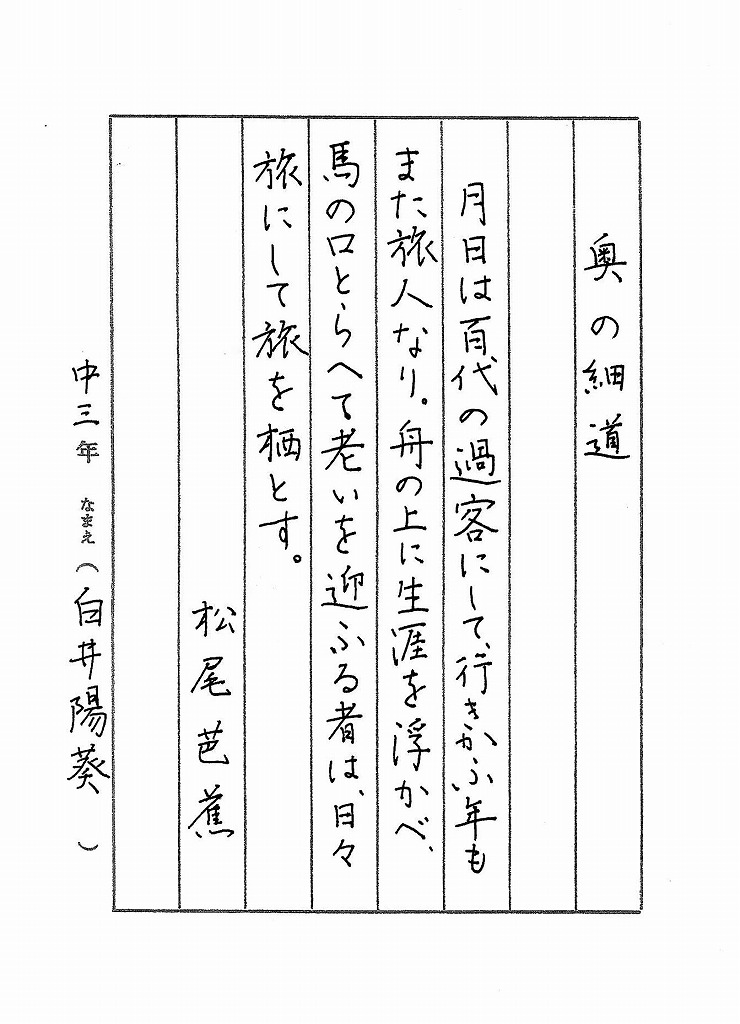 奥の細道
月日は百代の過客にして、行きかふ年も
また旅人なり。舟の上に生涯を浮かべ、
馬の口とらへて老いを迎ふる者は、日々
旅にして旅を栖とす。
松尾芭蕉
中三年 なまえ（白井陽葵）